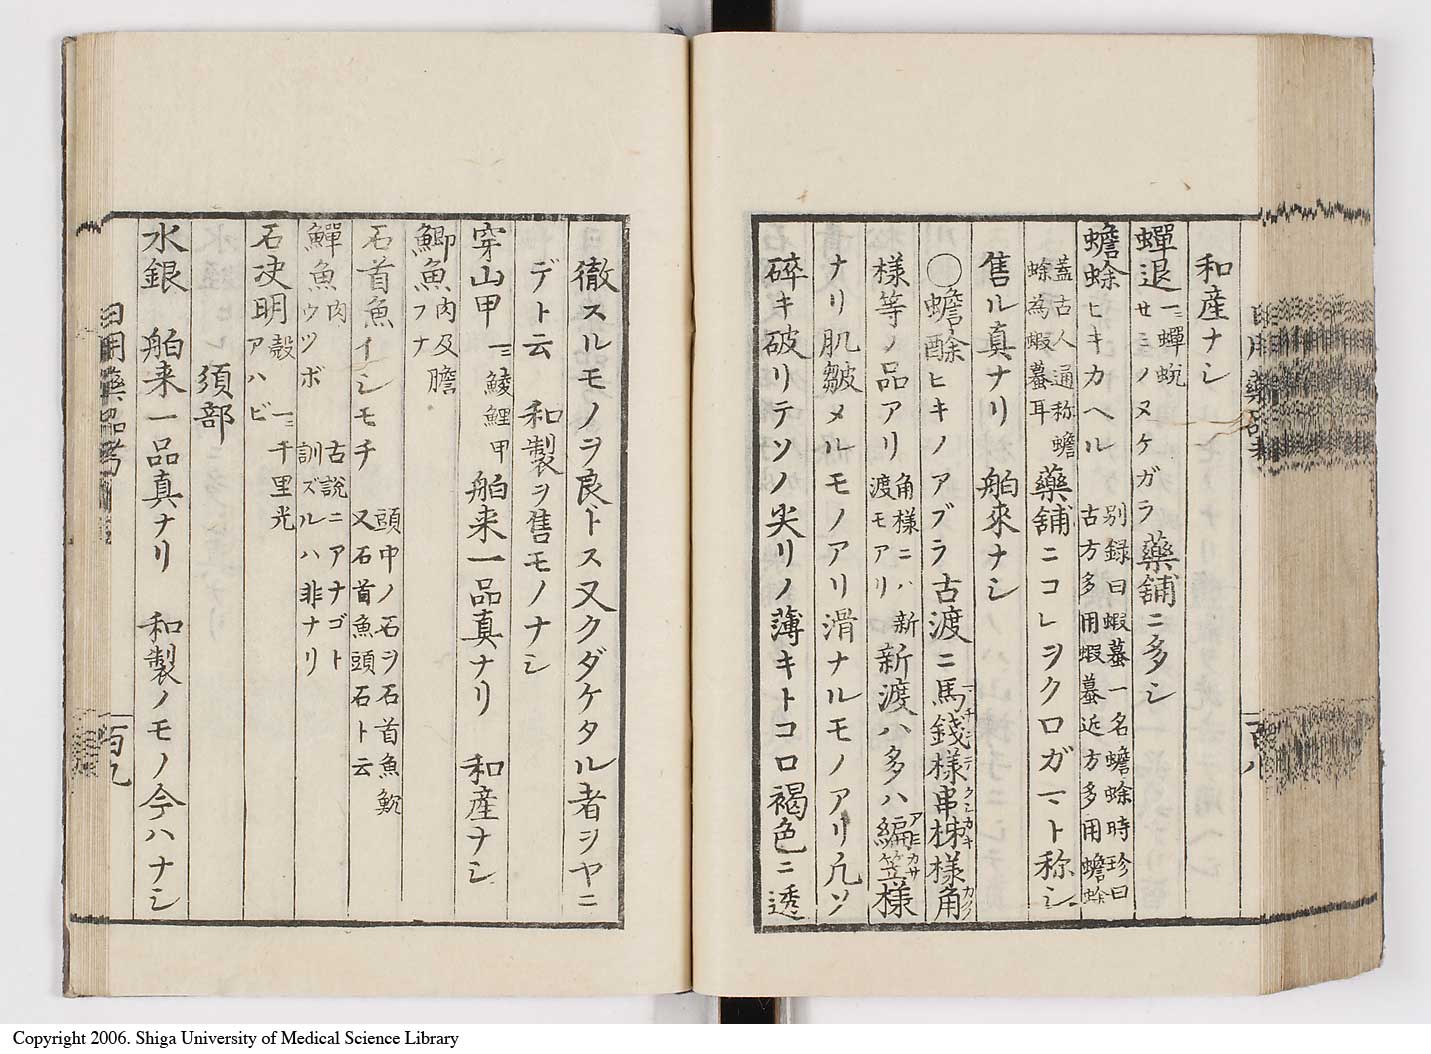 和産ナシ
蟬退 一ニ蟬蛻 セミノヌケガラ 藥舗ニ多シ
蟾蜍 ヒキカヘル 別録曰蝦蟇一名蟾蜍時珍曰 古方多用蝦蟇近方多用蟾蜍
蓋古人通称蟾 蜍為蝦蟇耳 藥舗ニコレヲクロガマト称シ
售ル真ナリ 舶來ナシ
○蟾酥 ヒキノアブラ 古渡ニ馬錢様串柹様角
様等ノ品アリ 角様ニハ新 渡モアリ 新渡ハ多ハ編笠様
ナリ肌皺メルモノアリ滑ナルモノアリ凡ソ
碎キ破リテソノ尖リノ薄キトコロ褐色ニ透
徹スルモノヲ良トス又クダケタル者ヲヤニ
デト云 和製ヲ售モノナシ
穿山甲 一ニ鯪鯉甲 舶来一品真ナリ 和産ナシ
鯽魚 肉及膽 フナ
石首魚 イシモチ 頭中ノ石ヲ石首魚魫 又石首魚頭石ト云
鱓魚 肉 ウツボ 古説ニアナゴト 訓ズルハ非ナリ
石决明 殻 アハビ 一ニ千里光
須部
水銀 舶来一品真ナリ 和製ノモノ今ハナシ
日用藥品考
百九
Copyright 2006. Shiga University of Medical Science Library